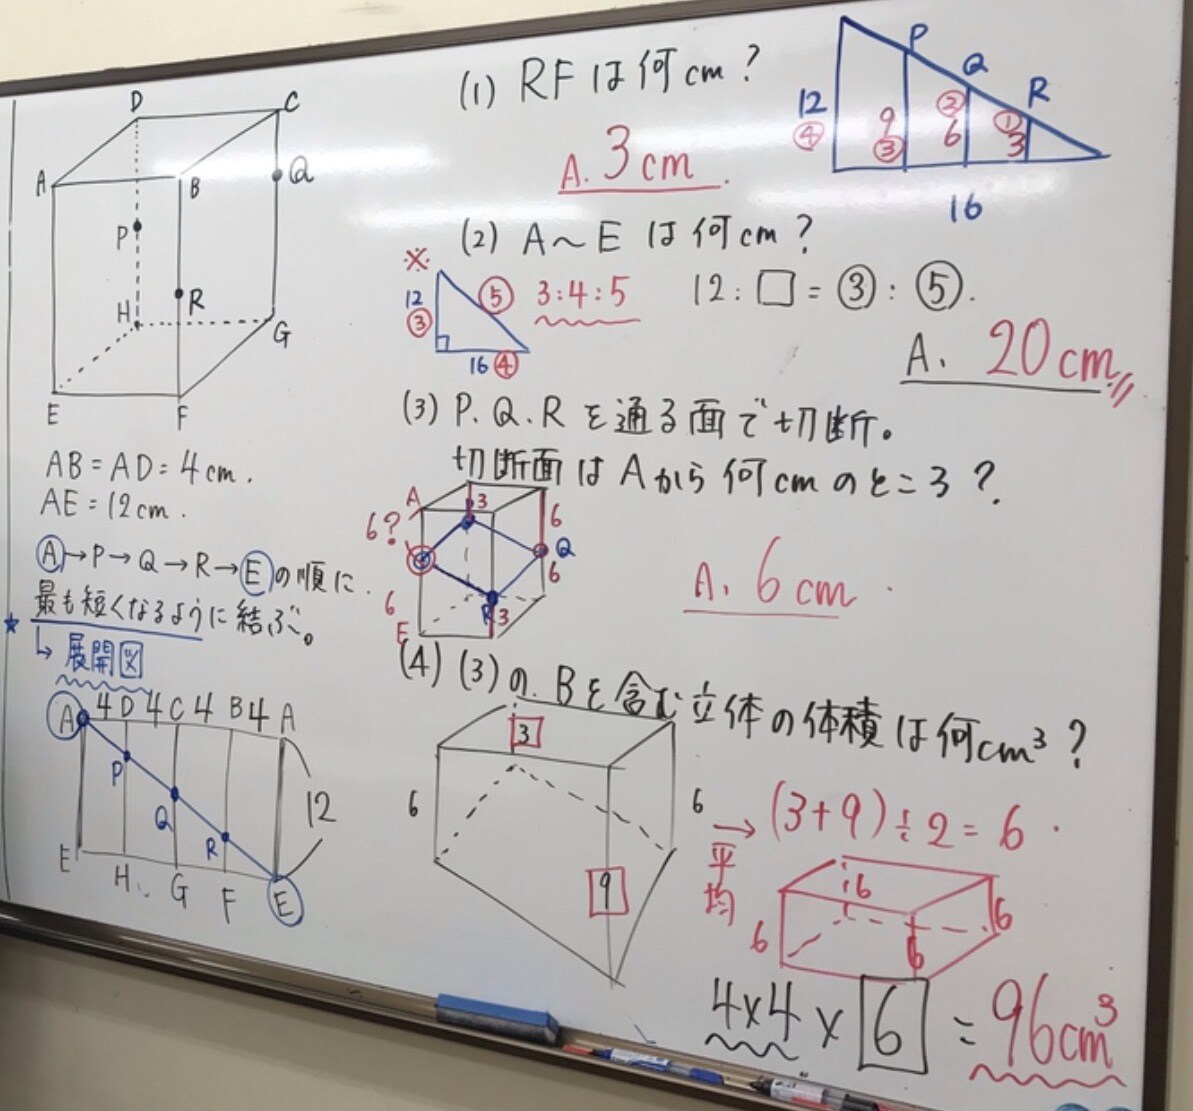 D
C
A
B
Q
P
R
H
G
E
F
AB=AD=4cm.
AE=12cm.
Ⓐ→P→Q→R→Ⓔの順に
最も短くなるように結ぶ。
★
↳展開図
A 4 D 4 C 4 B 4 A
P
Q
R
12
E H G F E
(1) RFは何cm?
A. 3cm.
P
Q
R
12
④
9
③
②
6
①
3
16
(2) A〜Eは何cm?
※
12
③
⑤
16④
3:4:5
12:□=③:⑤.
A. 20cm
(3) P.Q.Rを通る面で切断。
切断面はAから何cmのところ?
A
3
6?
6
Q
6
6
R
3
E
A. 6cm
(4) (3)の.Bを含む立体の体積は何cm³?
3
6
6
9
→ (3+9)÷2=6.
平均
6
6
6
6
4×4×6=96cm³